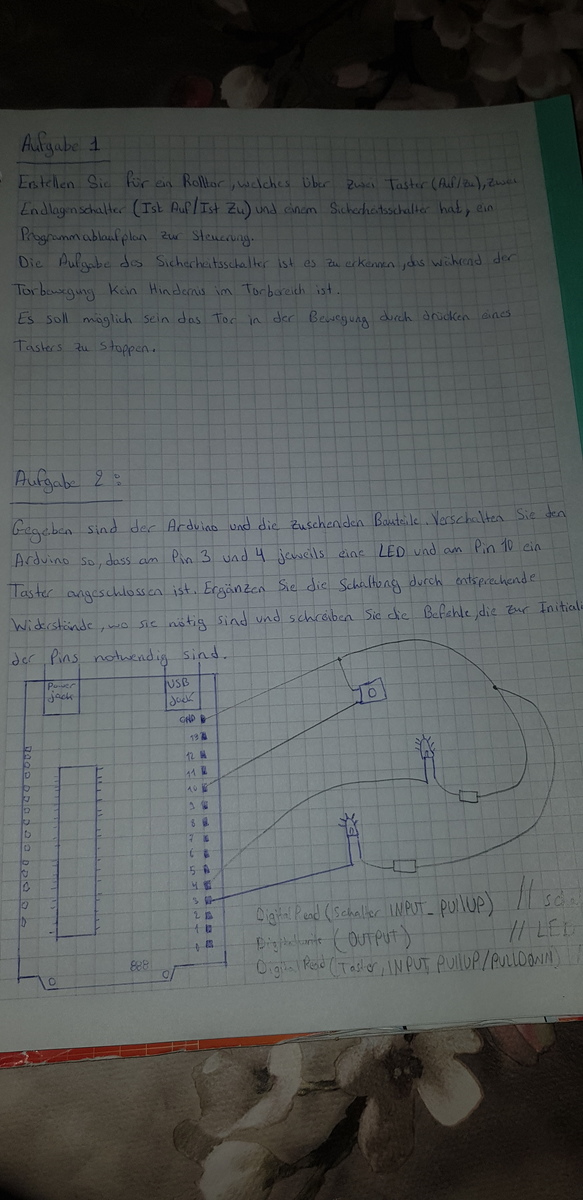 Aufgabe 1
Erstellen Sie für ein Rolltor, welches über zwei Taster (Auf/Zu), zwei
Endlagenschalter (Ist Auf/Ist Zu) und einem Sicherheitsschalter hat, ein
Programmablaufplan zur Steuerung.
Die Aufgabe des Sicherheitsschalter ist es zu erkennen, das während der
Torbewegung kein Hindernis im Torbereich ist.
Es soll möglich sein das Tor in der Bewegung durch drücken eines
Tasters zu stoppen.
Aufgabe 2:
Gegeben sind der Arduino und die zusehenden Bauteile. Verschalten Sie den
Arduino so, dass am Pin 3 und 4 jeweils eine LED und am Pin 10 ein
Taster angeschlossen ist. Ergänzen Sie die Schaltung durch entsprechende
Widerstände, wo sie nötig sind und schreiben Sie die Befehle, die zur Initiali
der Pins notwendig sind.
Power
Jack
USB
Jack
GND
13
12
11
10
9
8
7
6
5
4
3
2
1
0
DigitalRead (Schalter INPUT_PULLUP) //
(OUTPUT) // LE
DigitalRead (Taster, INPUT PULLUP/PULLDOWN)